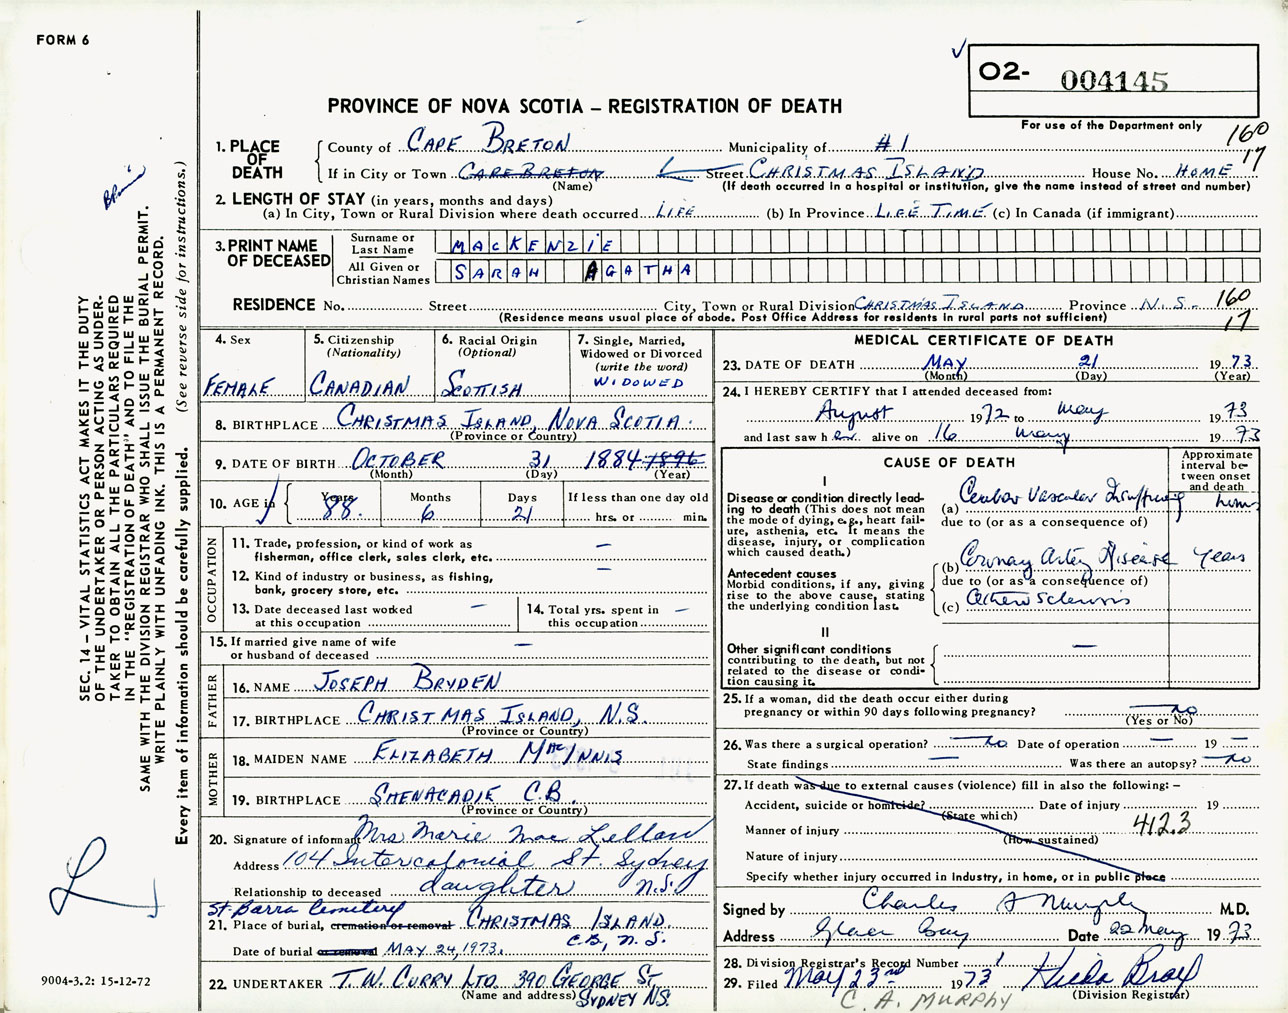 FORM 6
O2- 004145
For use of the Department only
PROVINCE OF NOVA SCOTIA – REGISTRATION OF DEATH
160
17
1. PLACE OF DEATH
County of CAPE BRETON Municipality of #1
If in City or Town CAPE BRETON Street CHRISTMAS ISLAND House No. HOME
(Name) (If death occurred in a hospital or institution, give the name instead of street and number)
2. LENGTH OF STAY (in years, months and days)
(a) In City, Town or Rural Division where death occurred LIFE (b) In Province LIFE TIME (c) In Canada (if immigrant)
3. PRINT NAME OF DECEASED
Surname or Last Name MACKENZIE
All Given or Christian Names SARAH AGATHA
RESIDENCE No. Street City, Town or Rural Division CHRISTMAS ISLAND Province N.S. 160
17
(Residence means usual place of abode. Post Office Address for residents in rural parts not sufficient)
4. Sex FEMALE
5. Citizenship (Nationality) CANADIAN
6. Racial Origin (Optional) SCOTTISH
7. Single, Married, Widowed or Divorced (write the word) WIDOWED
8. BIRTHPLACE CHRISTMAS ISLAND, NOVA SCOTIA.
(Province or Country)
9. DATE OF BIRTH OCTOBER 31 1884 1896
(Month) (Day) (Year)
10. AGE in Years 88. Months 6 Days 21 If less than one day old hrs. or min.
OCCUPATION
11. Trade, profession, or kind of work as fisherman, office clerk, sales clerk, etc. –
12. Kind of industry or business, as fishing, bank, grocery store, etc. –
13. Date deceased last worked at this occupation –
14. Total yrs. spent in this occupation –
15. If married give name of wife or husband of deceased –
FATHER
16. NAME JOSEPH BRYDEN
17. BIRTHPLACE CHRISTMAS ISLAND, N.S.
(Province or Country)
MOTHER
18. MAIDEN NAME ELIZABETH MacINNIS
19. BIRTHPLACE SHENACADIE C.B.
(Province or Country)
20. Signature of informant Mrs Marie MacLellan
Address 104 Intercolonial St. Sydney
Relationship to deceased daughter N.S.
St. Barra Cemetery
21. Place of burial, cremation or removal CHRISTMAS ISLAND
C.B., N.S.
Date of burial or removal MAY 24, 1973.
22. UNDERTAKER T.W. CURRY LTD. 390 GEORGE ST.
(Name and address) SYDNEY NS.
MEDICAL CERTIFICATE OF DEATH
23. DATE OF DEATH MAY 21 1973
(Month) (Day) (Year)
24. I HEREBY CERTIFY that I attended deceased from:
August 1972 to May 1973
and last saw her alive on 16 May 1973
CAUSE OF DEATH
Approximate interval between onset and death
I
Disease or condition directly leading to death (This does not mean the mode of dying, e.g., heart failure, asthenia, etc. It means the disease, injury, or complication which caused death.)
(a) Cerebro Vascular Insufficiency hours
due to (or as a consequence of)
Antecedent causes
Morbid conditions, if any, giving rise to the above cause, stating the underlying condition last.
(b) Coronary Artery Disease years
due to (or as a consequence of)
(c) Atherosclerosis
II
Other significant conditions contributing to the death, but not related to the disease or condition causing it. –
25. If a woman, did the death occur either during pregnancy or within 90 days following pregnancy? no
(Yes or No)
26. Was there a surgical operation? no Date of operation – 19 –
State findings – Was there an autopsy? no
27. If death was due to external causes (violence) fill in also the following: –
Accident, suicide or homicide? Date of injury 19
(State which)
412.3
Manner of injury
(How sustained)
Nature of injury
Specify whether injury occurred in industry, in home, or in public place
Signed by Charles A Murphy M.D.
Address Glace Bay Date 22 May 1973
28. Division Registrar's Record Number 1
29. Filed May 23rd 1973 Hilda Bray
(Division Registrar)
C. A. MURPHY
SEC. 14 – VITAL STATISTICS ACT MAKES IT THE DUTY
OF THE UNDERTAKER OR PERSON ACTING AS UNDER-
TAKER TO OBTAIN ALL THE PARTICULARS REQUIRED
IN THE "REGISTRATION OF DEATH" AND TO FILE THE
SAME WITH THE DIVISION REGISTRAR WHO SHALL ISSUE THE BURIAL PERMIT.
WRITE PLAINLY WITH UNFADING INK. THIS IS A PERMANENT RECORD.
Every item of information should be carefully supplied. (See reverse side for instructions.)
9004-3.2: 15-12-72